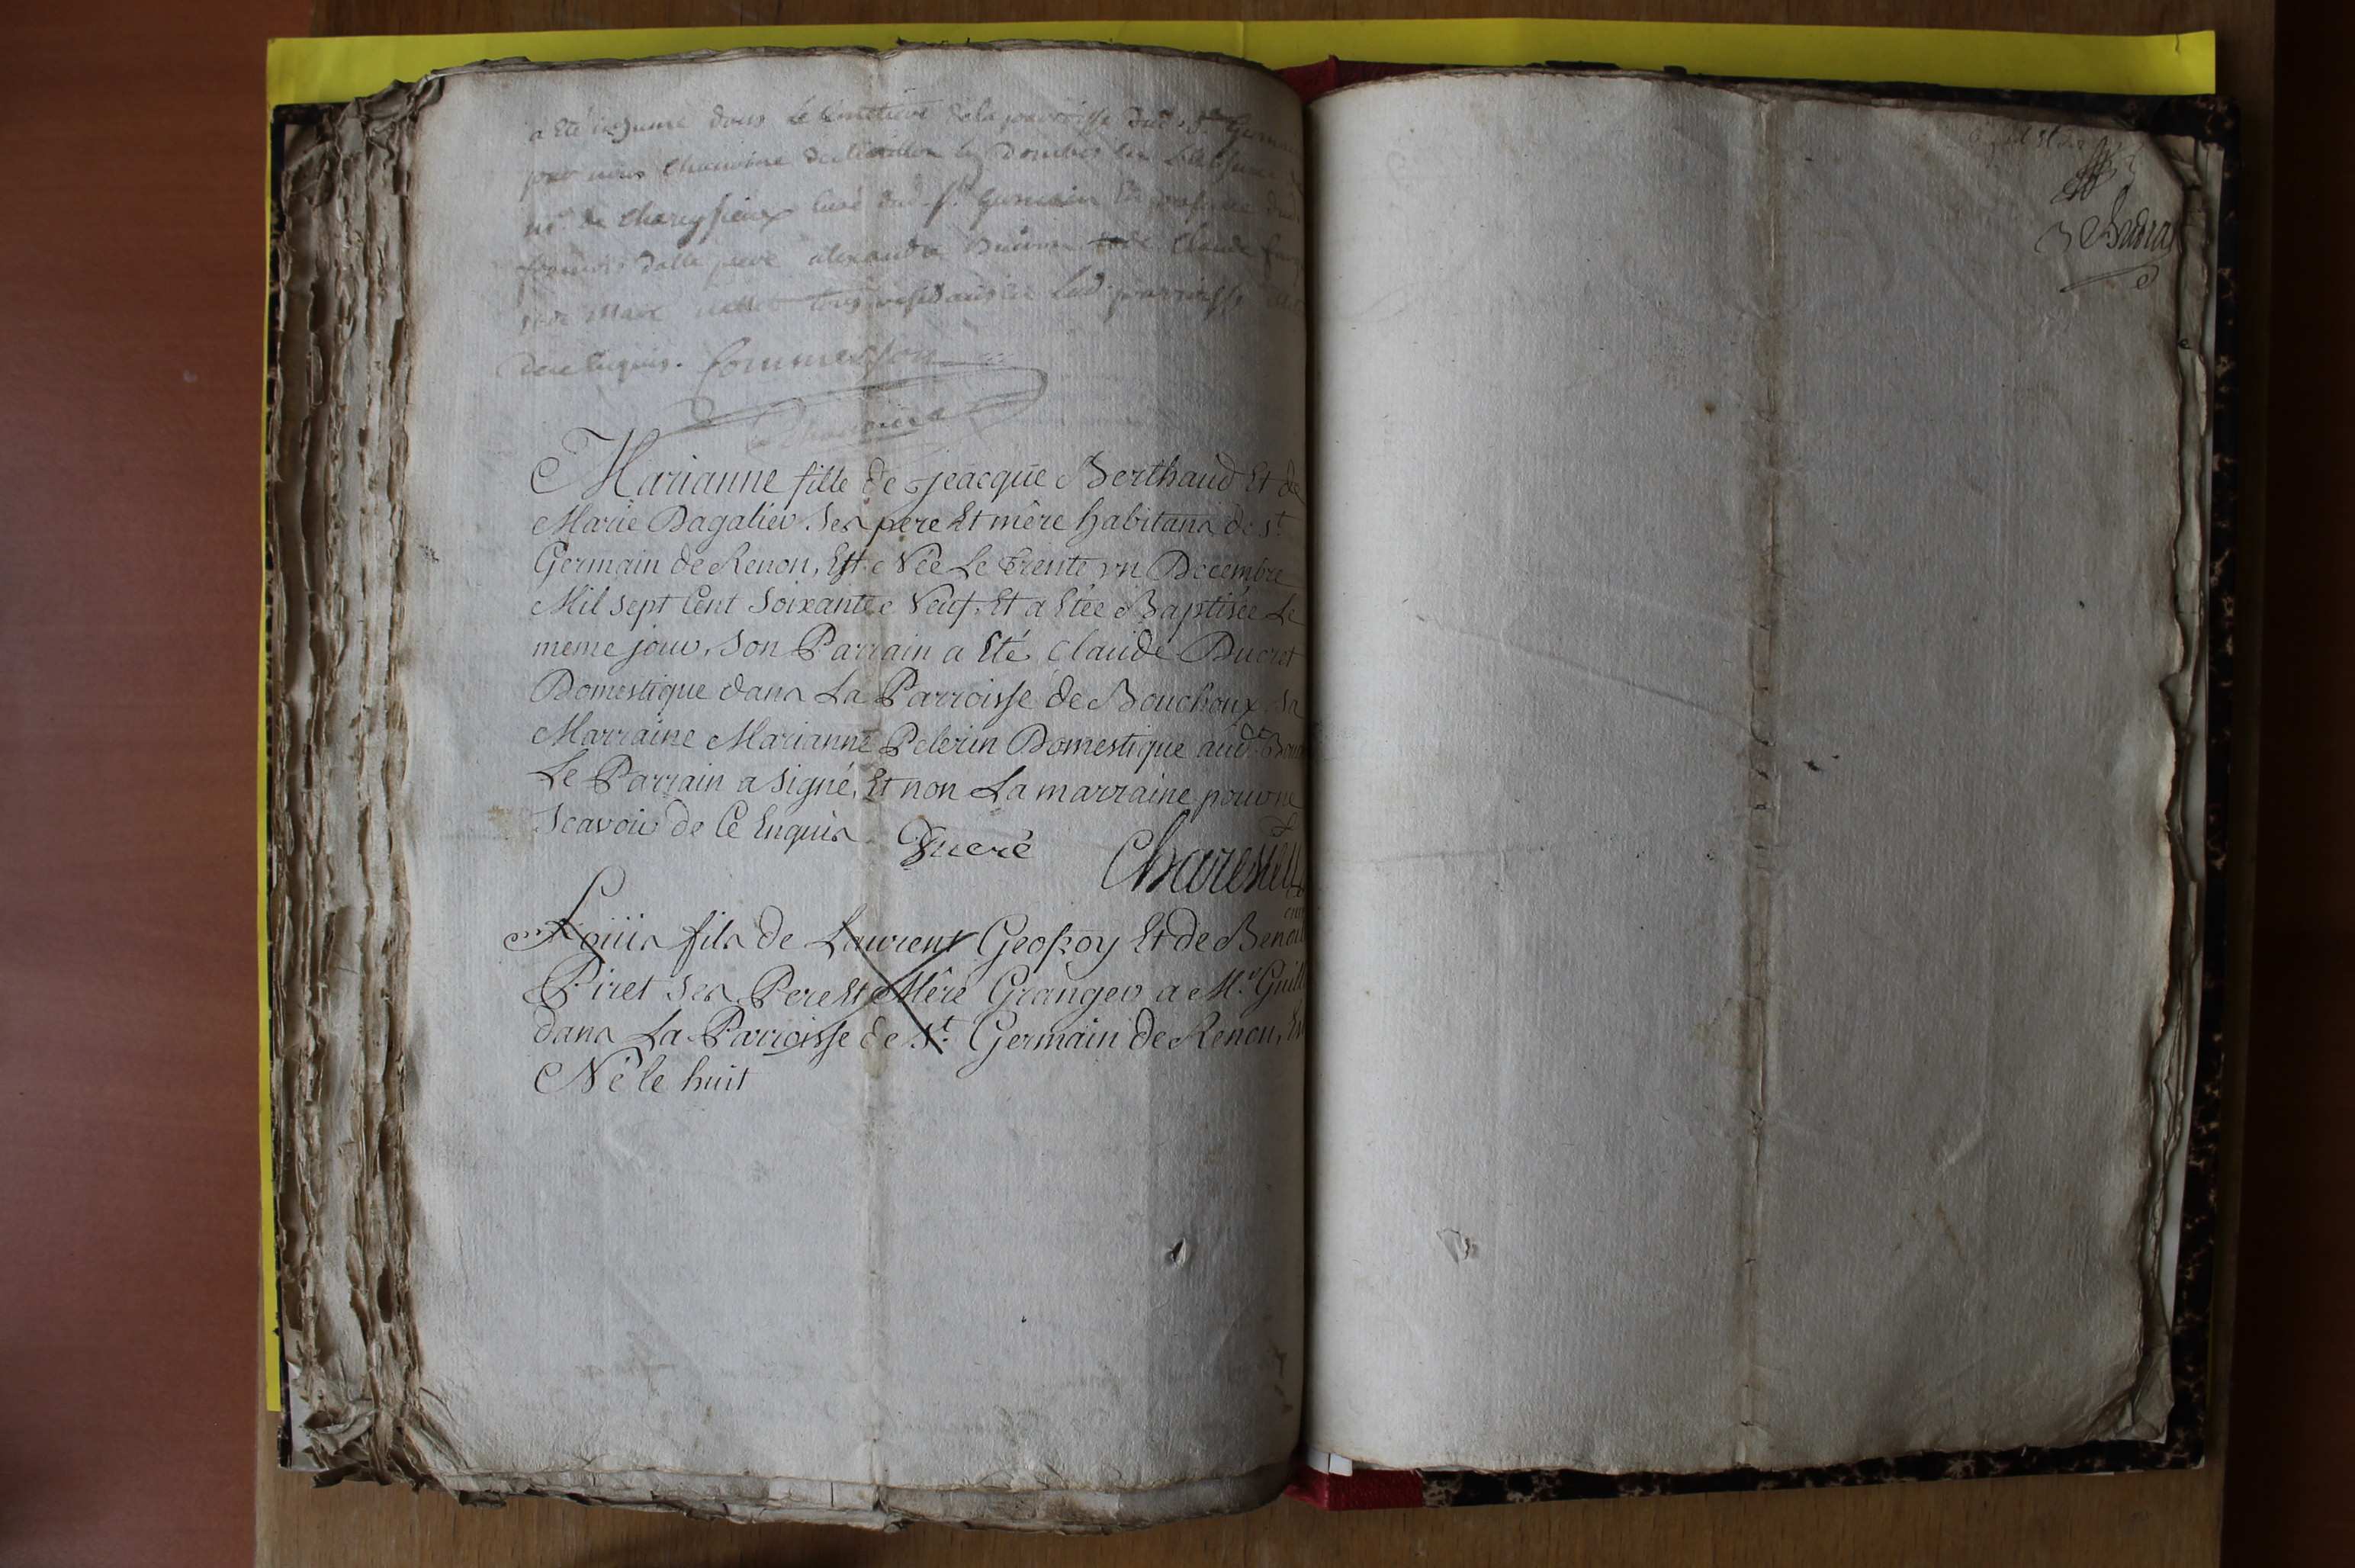 a été inhumé dans le cimetiere de la parroisse dud. St. Germain
par nous chanoine de Chatillon les Dombes en l'absence
mr. de Chareysieux curé dud. St. Germain En presence
alexandre Claude
Marc tous residants en lad. parroisse
de ce Enquis. Commerson
chanoine
Marianne fille de jeacque Berthaud Et de
Marie Dagalier Ses pere Et mêre habitans de St.
Germain de Renon, Est Née Le trente un Decembre
Mil Sept Cent Soixante Neuf, Et a Etée Baptisée Le
meme jour, Son Parrain a Eté Claude Ducret
Domestique dans La Parroisse de Bouchoux Sa
Marraine Marianne Pelerin Domestique aud.
Le Parrain a Signé, Et non La marraine pour ne
Scavoir de Ce Enquis Ducré Charesieux
Louis fils de Laurent Geofroy Et de Benoit
Piret Ses Pere Et Mêre Granger a Mr. Guill
dans La Parroisse de St. Germain de Renon, Est
Né le huit